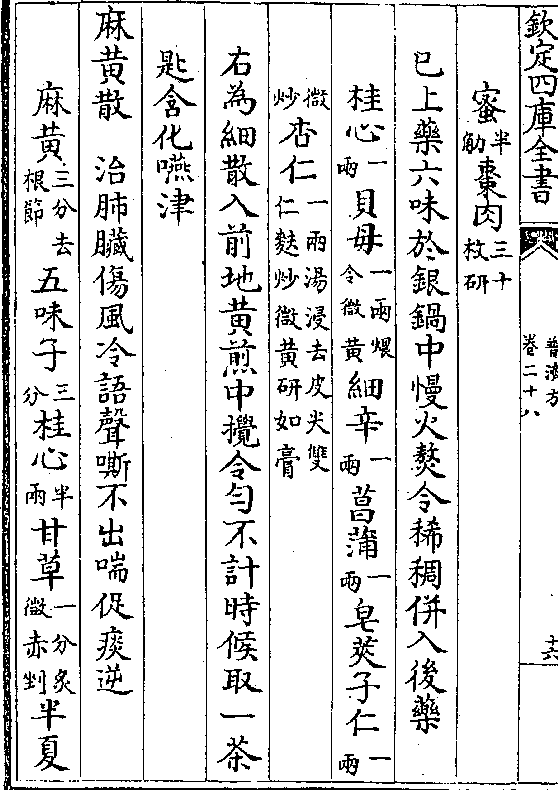 欽定四庫全書
普濟方
卷二十八
十六
蜜半觔棗肉三十枚研
已上藥六味於銀鍋中慢火熬令稀稠併入後藥
桂心一兩貝母一兩煨令微黄細辛一兩菖蒲一兩皂莢子仁一兩
微炒杏仁一兩湯浸去皮尖雙仁麩炒微黄研如膏
右為細散入前地黄煎中攪令勻不計時候取一茶
匙含化嚥津
麻黄散 治肺臟傷風冷語聲嘶不出喘促痰逆
麻黄三分去根節五味子三分桂心半兩甘草一分炙微赤剉半夏